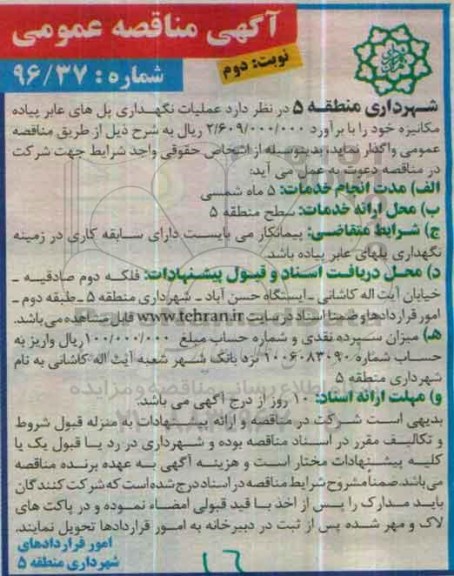 آگهی مناقصه عمومی
نوبت: دوم
شماره: ۹۶/۳۷
شهرداری منطقه ۵ در نظر دارد عملیات نگهداری پل های عابر پیاده
مکانیزه خود را با برآورد ۲/۶۰۹/۰۰۰/۰۰۰ ریال به شرح ذیل از طریق مناقصه
عمومی واگذار نماید، بدینوسیله از اشخاص حقوقی واجد شرایط جهت شرکت
در مناقصه دعوت به عمل می آید:
الف) مدت انجام خدمات: ۵ ماه شمسی
ب) محل ارائه خدمات: سطح منطقه ۵
ج) شرایط متقاضی: پیمانکار می بایست دارای سابقه کاری در زمینه
نگهداری پلهای عابر پیاده باشد.
د) محل دریافت اسناد و قبول پیشنهادات: فلکه دوم صادقیه -
خیابان آیت اله کاشانی - ایستگاه حسن آباد - شهرداری منطقه ۵ - طبقه دوم -
امور قراردادها و ضمنا اسناد در سایت www.tehran.ir قابل مشاهده می باشد.
هـ) میزان سپرده نقدی و شماره حساب مبلغ ۱۰۰/۰۰۰/۰۰۰ ریال واریز به
حساب شماره ۱۰۰۶۰۸۳۰۹۰ نزد بانک شهر شعبه آیت اله کاشانی به نام
شهرداری منطقه ۵
و) مهلت ارائه اسناد: ۱۰ روز از درج آگهی می باشد.
بدیهی است شرکت در مناقصه و ارائه پیشنهادات به منزله قبول شروط
و تکالیف مقرر در اسناد مناقصه بوده و شهرداری در رد یا قبول یک یا
کلیه پیشنهادات مختار است و هزینه آگهی به عهده برنده مناقصه
می باشد. ضمنا مشروح شرایط مناقصه در اسناد درج شده است که شرکت کنندگان
باید مدارک را پس از اخذ با قید قبولی امضاء نموده و در پاکت های
لاک و مهر شده پس از ثبت در دبیرخانه به امور قراردادها تحویل نمایند.
امور قراردادهای
شهرداری منطقه ۵
۱۶